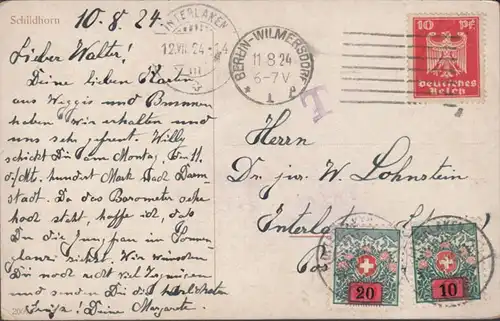 Schildhorn
10.8.24.
INTERLAKEN
12.VIII.24
BERLIN-WILMERSDORF
11.8.24
6-7V
10 Pf
Deutsches
Reich
T
Lieber Walter!
Deine lieben Karten
aus Weggis und Brunnen
haben wir erhalten und
uns sehr gefreut. Willy
schickt Dir am Montag, den 11.
d/Mts. hundert Mark nach Darm
stadt. Da das Barometer sehr
hoch steht, hoffe ich, daß
Du die Jungfrau im Sonnen
glanze siehst. Wir wünschen
Dir noch recht viel Vergnügen
und senden Dir die herzlichsten
Grüße! Deine Margarete.
Herrn
Dr. jur. W. Lohnstein
Interlaken
20
10